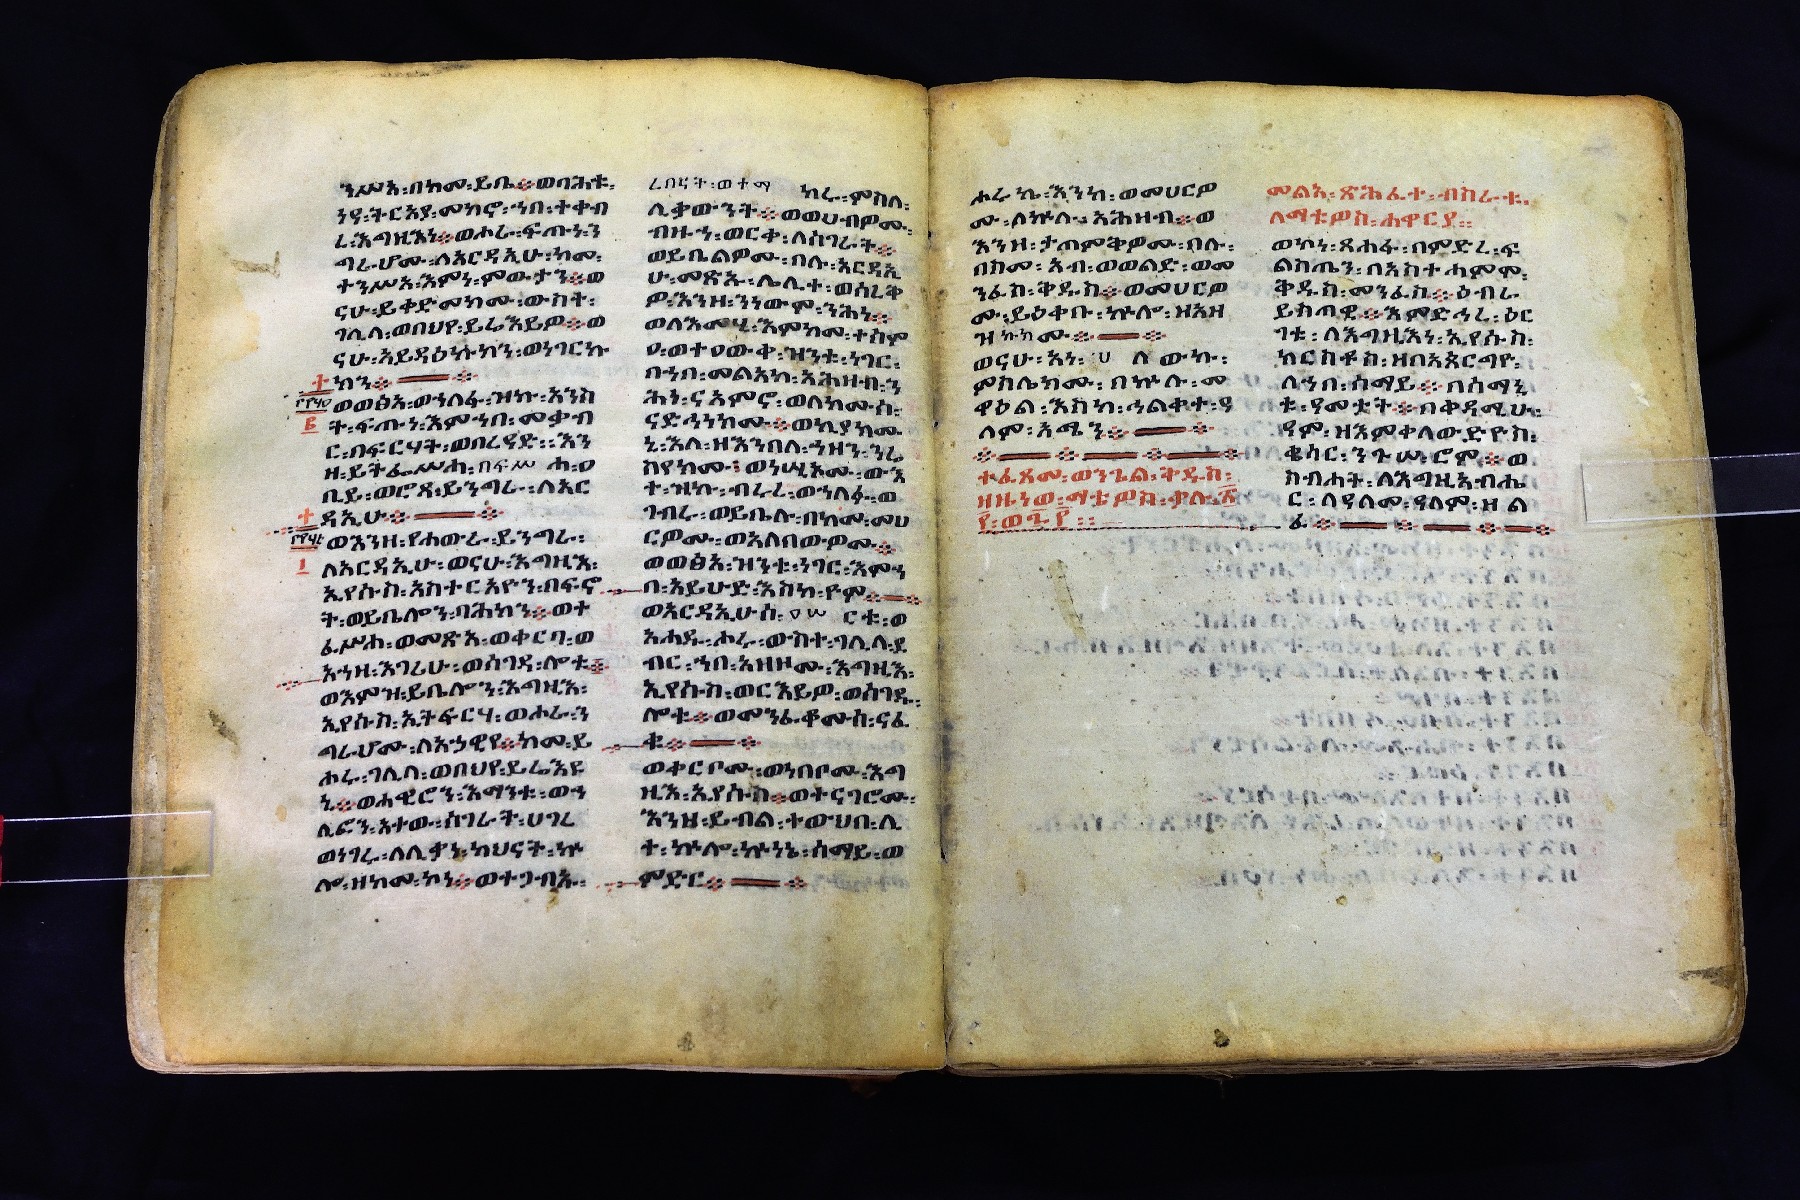 ንሥአ፡በከመ፡ይቤ፨ወባሕቱ፡
ንዓ፡ትርአያ፡መካኖ፡ኀበ፡ተቀብ
ረ፡እግዚእነ፨ወሖራ፡ፍጡነ፡ን
ግራሆሙ፡ለአርዳኢሁ፡ከመ፡
ተንሥአ፡እምነ፡ምውታን፨ወ
ናሁ፡ይቀድመክሙ፡ውስተ፡
ገሊላ፡ወበህየ፡ይሬእይዎ፨ወ
ናሁ፡አይዳዕኩክን፡ወነገርኩ
ክን፨
ወወፅአ፡ወኀለፋ፡ዝኩ፡አንስ
ት፡ፍጡነ፡እምኀበ፡መቃብ
ር፡በፍርሃት፡ወበረዓድ፡፡እን
ዘ፡ይትፌሥሐ፡በፍሥሐ፡ዐ
ቢይ፡ወሮጻ፡ይንግራ፡ለአር
ዳኢሁ፨
ወእንዘ፡የሐውራ፡ይንግራ፡
ለአርዳኢሁ፡ወናሁ፡እግዚእ፡
ኢየሱስ፡አስተርአዮን፡በፍኖ
ት፡ወይቤሎን፡ባሕክን፨ወተ
ፈሥሐ፡ወመጽአ፡ወቀርባ፡ወ
አኀዛ፡እገሪሁ፡ወሰገዳ፡ሎቱ፨
ወእምዝ፡ይቤሎን፡እግዚእ፡
ኢየሱስ፡ኢትፍርሃ፡ወሖራ፡ን
ግራሆሙ፡ለአኃዊየ፨ከመ፡ይ
ሖሩ፡ገሊላ፡ወበህየ፡ይሬእዩ
ኒ፨ወሐዊሮን፡እማንቱ፡ወኀ
ሊፎን፡አተው፡ሰገራት፡ሀገረ
ወነገሩ፡ለሊቃነ፡ካህናት፡ኵ
ሎ፡ዘከመ፡ኮነ፨ወተጋብኡ፡
ረበናት፡ወተማከሩ፡ምስለ፡
ሊቃውንት፨ወወሀብዎሙ፡
ብዙኀ፡ወርቀ፡ለሰገራት፨
ወይቤልዎሙ፡በሉ፡አርዳኢ
ሁ፡መጽኡ፡ሌሊተ፡ወሰረቅ
ዎ፡እንዘ፡ንነውም፡ንሕነ፨
ወለእመሂ፡እምከመ፡ተሰም
ዐ፡ወተዐውቀ፡ዝንቱ፡ነገር፡
በኀበ፡መልአከ፡አሕዛብ፡ን
ሕነ፡ናአምኖ፡ወለክሙሰ፡
ናድኅነክሙ፨ወኪያክሙ
ኒ፡አለ፡ዘእንበለ፡ኀዘን፡ንሬ
ስየክሙ፤ወነሢኦሙ፡ውእ
ተ፡ዝኩ፡ብሩረ፡ወኀለፉ፡ወ
ገብሩ፡ወይቤሉ፡በከመ፡መሀ
ርዎሙ፡ወአለበውዎሙ፨
ወወፅአ፡ዝንቱ፡ነገር፡እምኀ
በ፡አይሁድ፡እስከ፡ዮም፨
ወአርዳኢሁሰ፡ዐሠርቱ፡ወ
አሐዱ፡ሖሩ፡ውስተ፡ገሊላ፡ደ
ብር፡ኀበ፡አዘዞሙ፡እግዚእ፡
ኢየሱስ፡ወርእይዎ፡ወሰገዱ፡
ሎቱ፨ወመንፈቆሙሰ፡ናፈ
ቁ፨
ወቀርቦሙ፡ወነበቦሙ፡እግ
ዚእ፡ኢየሱስ፨ወተናገሮሙ፡
እንዘ፡ይብል፡ተውህበ፡ሊ
ተ፡ኵሎ፡ኵነኔ፡ሰማይ፡ወ
ምድር፨
ሑሩ፡ኬ፡እንከ፡ወመሀርዎ
ሙ፡ለኵሉ፡አሕዛብ፨ወ
እንዘ፡ታጠምቅዎሙ፡በሉ፡
በስመ፡አብ፡ወወልድ፡ወመ
ንፈስ፡ቅዱስ፨ወመሀርዎ
ሙ፡ይዕቀቡ፡ኵሎ፡ዘአዘ
ዝኩክሙ፨
ወናሁ፡አነ፡ሀለውኩ፡
ምስሌክሙ፡በኵሉ፡መ
ዋዕል፡እስከ፡ኅልቀተ፡ዓ
ለም፡አሜን፨
ተፈጸመ፡ወንጌል፡ቅዱስ፡
ዘዜነወ፡ማቴዎስ፡ቃሉ፡
መልአ፡ጽሕፈተ፡ብስራቱ፡
ለማቴዎስ፡ሐዋርያ፡፡
ወኮነ፡ጸሐፋ፡በምድረ፡ፍ
ልስጤን፡በአስተሓምም፡
ቅዱስ፡መንፈስ፨ዕብራ
ይስጢ፨እምድኅረ፡ዕር
ገቱ፡ለእግዚእነ፡ኢየሱስ፡
ክርስቶስ፡ዘበአጽርጎየ፡
ለኀበ፡ሰማይ፨በሰማኒ
ቱ፡ዓመቷት፨በቀዳሚሁ፡
ዓም፡ዘእምቀለውድዮስ፡
ቄሳር፡ንጉሠ፡ሮም፨ወ
ስብሐት፡ለእግዚአብሔ
ር፡ለዓለመ፡ዓለም፡ዘል
ፈ፨